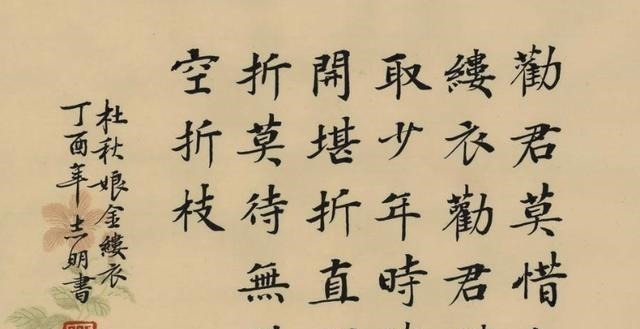 勸君莫惜
縷衣勸君
取少年時
開堪折直
折莫待無
空折枝
杜秋娘金縷衣
丁酉年志明書